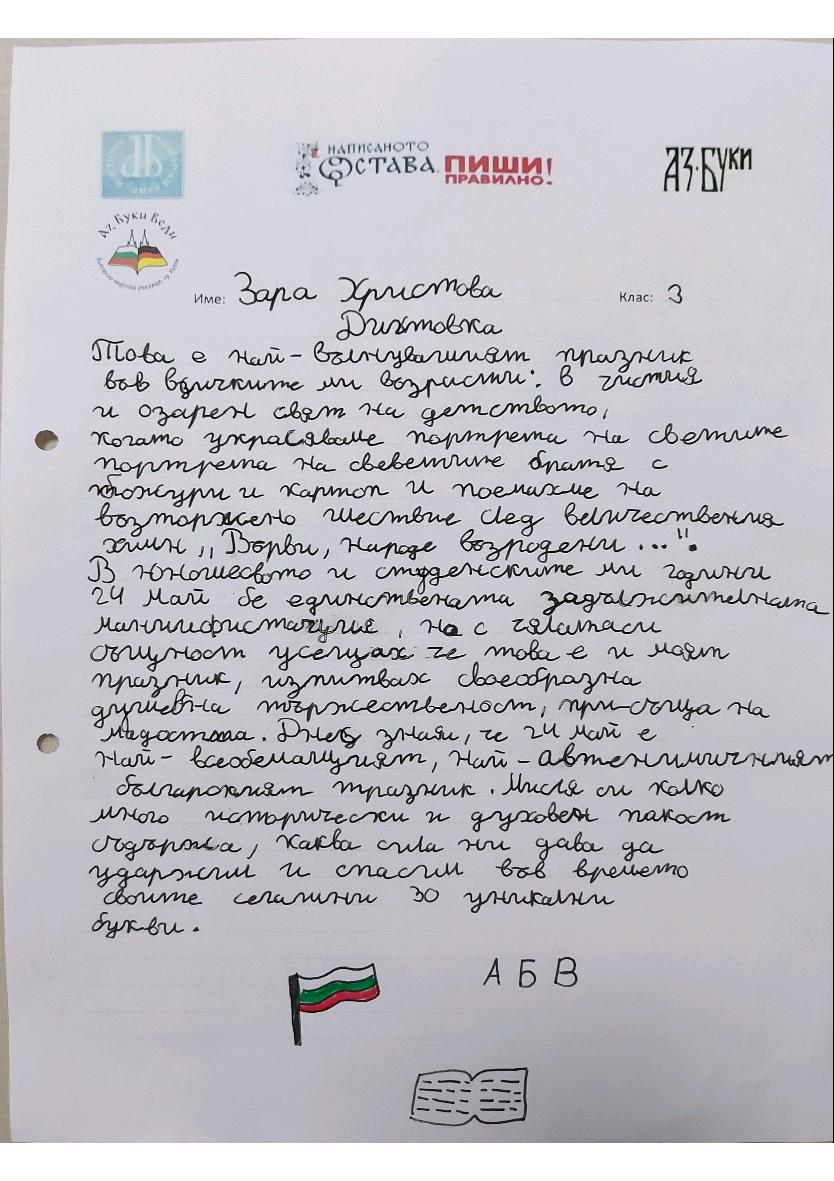 НАПИСАНОТО
ОСТАВА. ПИШИ
ПРАВИЛНО!
АЗ·БУКИ
Аз, Буки Веди
Име: Зара Христова Клас: 3
Диктовка
Това е най-вълнуващият празник
във всичките ми возрасти: в чистия
и озарен свят на детството,
когато украсяваме портрета на светите
портрета на свеветите братя с
божури и картоп и поемахме на
возторжено шествие след величествения
химн „Върви, народе возродени..."!
В юношесвото и студенските ми години
24 май бе единствената задължителната
манифистация, но с цялатаси
същност усещах че това е и моят
празник, изпитвах своеобразна
душевна тържественост, при-съща на
мадостта. Днес зная, че 24 май е
най-всеобемащият, най-автенимичният
българокият празник. Мисля си колко
много исторически и духовен пакост
съдържа, каква сила ни дава да
ударжим и спасим във времето
своите сегалини 30 уникални
букви.
А Б В